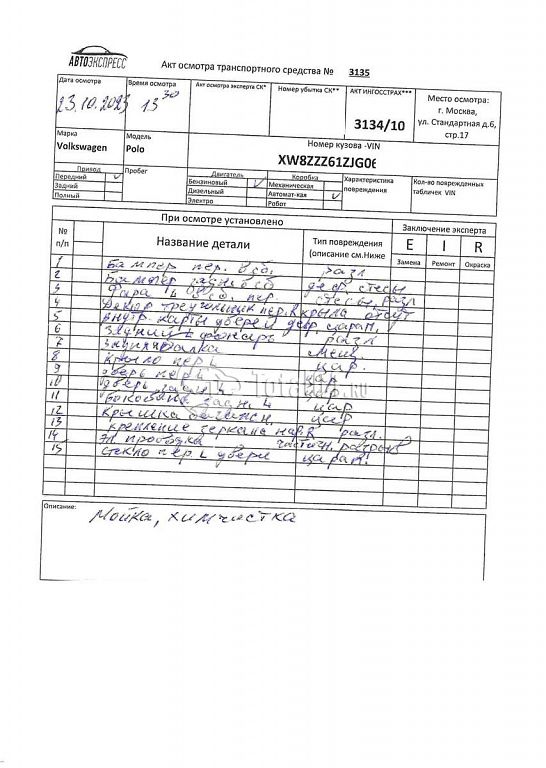 АВТОЭКСПРЕСС
Акт осмотра транспортного средства № 3135
Дата осмотра
23.10.2023
Время осмотра
13 30
Акт осмотра эксперта СК*
Номер убытка СК**
АКТ ИНГОССТРАХ***
3134/10
Место осмотра:
г. Москва,
ул. Стандартная д.6,
стр.17
Марка
Volkswagen
Модель
Polo
Номер кузова -VIN
XW8ZZZ61ZJG06
Привод
Передний V
Задний
Полный
Пробег
Двигатель
Бензиновый V
Дизельный
Электро
Коробка
Механическая
Автомат-кая V
Робот
Характеристика
повреждения
Кол-во поврежденных
табличек VIN
При осмотре установлено
Заключение эксперта
№
п/п
Название детали
Тип повреждения
(описание см.Ниже
E I R
Замена Ремонт Окраска
1 Бампер пер. разл
2 Бампер
3 Фара пер.
4 Декор пер. крыла отсут
5 внутр. карты дверей деф. царап.
6 Задний L фонарь разл
7 балка
8 крыло пер L цар.
9 дверь пер L цар
10 дверь задн L цар.
11 Боковина задн L цар
12 крышка цар
13 крепление зеркала разл.
14 эл проводка частичн. разрыв
15 стекло пер L двери царап.
Totalbu.ru
Описание:
Мойка, химчистка